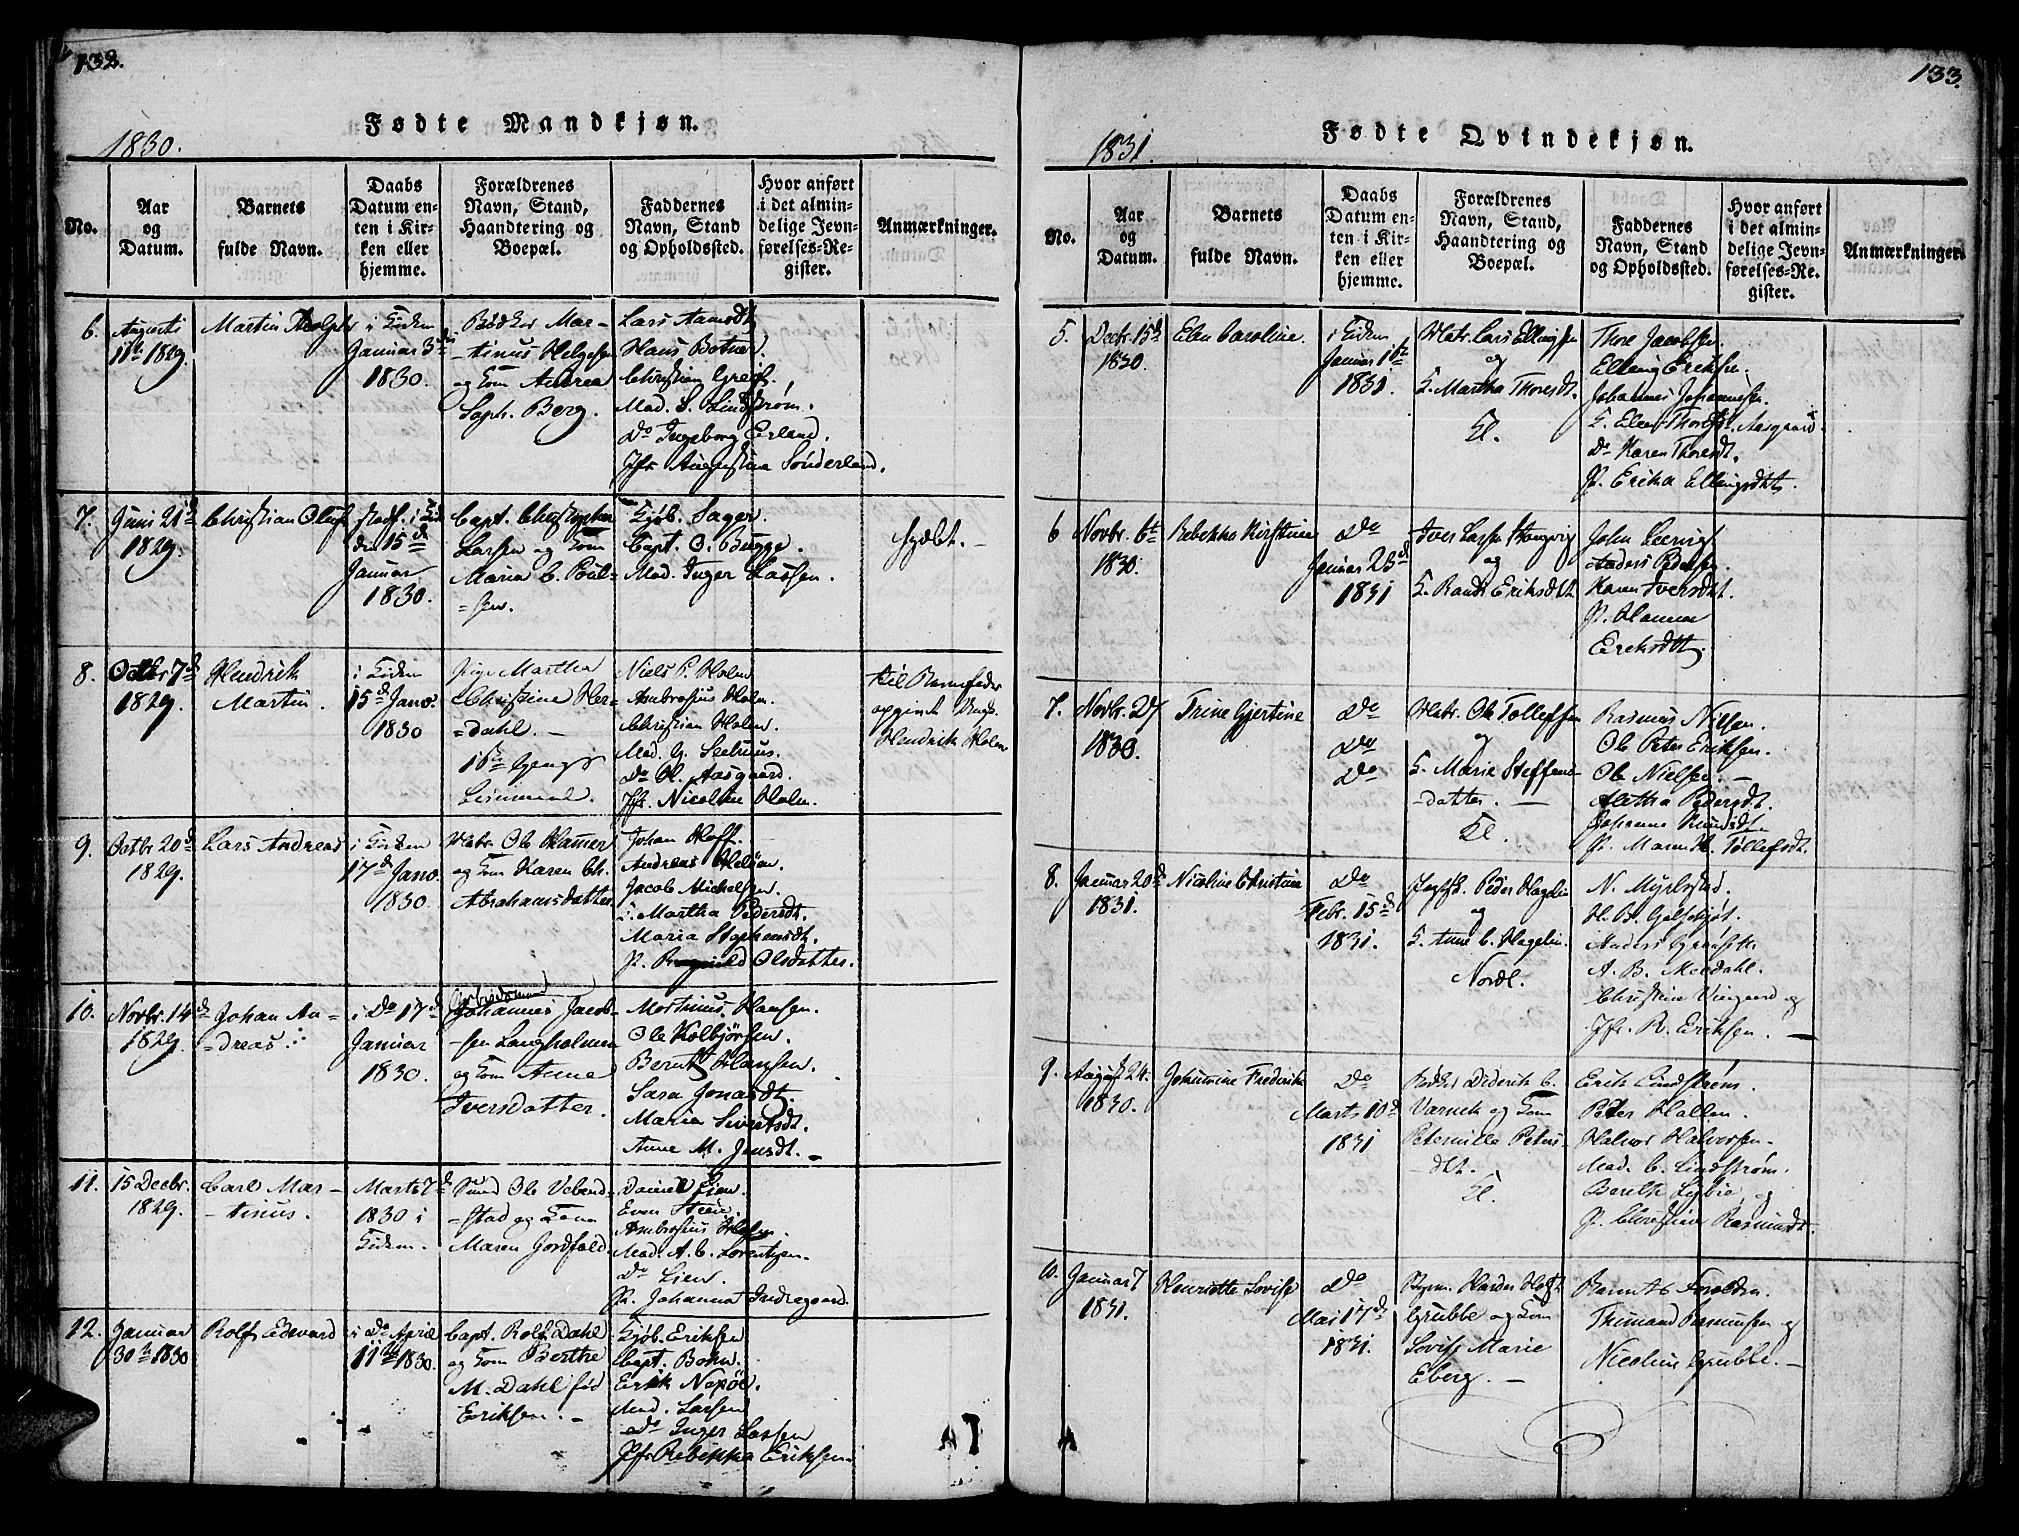 132.
Fødte Mandkjøn.
1830.
No.
Aar
og
Datum.
Barnets
fulde Navn.
Daabs
Datum en-
ten i Kir-
ken eller
hjemme.
Forældrenes
Navn, Stand,
Haandtering og
Boepæl.
Faddernes
Navn, Stand
og Opholdssted.
Hvor anført
i det almin-
delige Jevn-
førelses-Re-
gister.
Anmærkninger.
6.
Augusti
11te 1829.
Martin Adolph
i Kirken
Januar 3die
1830.
Bødker Mar-
tinus Helgesen
og Kone Andrea
Soph. Berg.
Lars Aamodt
Hans Botner.
Christian Greis.
Mad. L. Lindstrøm.
Do Ingeborg Erland.
Jfr. Augustina Sønderland.
7.
Juni 21de
1829.
Christian Oluf
stadf. i Kirk
den 15de
Januar
1830.
Capt. Christopher
Larsen og Kone
Maria C. Poul-
sen.
Kjøb. Sager.
Capt. O. Bugge.
Mad. Inger Lassen.
hjdbt. –
8.
Octbr 7de
1829.
Hendrik
Martin.
i Kirken
15de Janv.
1830
Pige Martha
Christine Her-
dahl. –
Niels P. Holm
Ambrosius Holm.
Christian Holm.
Mad. G. Leelnuus.
Do Ol. Aasgaard.
Jfr. Nicoline Holm.
til Barnefader
opgivet Ungk.
Hendrik Holm
9.
Octbr 20de
1829.
Lars Andreas
i Kirken
17de Janv.
1830.
Matr. Ole Hamer
og Kone Karen Ch.
Abrahamsdatter
Johan Hoff.
Andreas Nelson.
Jacob Michelsen.
K. Martha Pedersdt.
Maria Stephensdt.
P. Olsdatter.
10.
Novbr. 14de
1829.
Johan An-
dreas.
i Do 17de
Januar
1830.
Arbeidsmand
Johannes Jacob-
sen Langholmen
og Kone Anne
Iversdatter.
Morthinus Hansen.
Ole Kolbjørnsen.
Bernt Hansen.
Sara Jonasdt.
Maria Sivertsdt.
Anne M. Jensdt. –
11.
15 Decbr.
1829.
Carl Mar-
tinus.
Marts 7de
1830 i
Kirken.
Svend Ole Veband-
stad og Kone
Maren Jordfald.
Daniel Lien.
Even Steen.
Ambrosius Holm.
Mad. A. C. Lorentzen.
Do Lien.
P. Johanna Indregaard.
12.
Januar
30te 1830
Rolf Edevard
i Do April
11te 1830.
Capt. Rolf Dahl
og Kone Berthe
M. Dahl fød
Eriksen. –
Kjøb. Eriksen
Capt. Bohn.
Erik Nepøe.
Mad. Larsen
Do Inger Lossen
Jfr. Rebekka Eriksen.
133.
Fødte Qvindekjøn.
1831.
No.
Aar
og
Datum.
Barnets
fulde Navn.
Daabs
Datum en-
ten i Kir-
ken eller
hjemme.
Forældrenes
Navn, Stand,
Haandtering og
Boepæl.
Faddernes
Navn, Stand
og Opholdssted.
Hvor anført
i det almin-
delige Jevn-
førelses-Re-
gister.
Anmærkninger.
5.
Decbr. 15de
1830.
Elen Caroline.
i Kirken
Januar 16de
1831.
Matr. Lars Ellingsen
og
K. Martha Thoresdt.
Kl.
Thore Jacobsen.
Elling Eriksen.
Johannes Johannesen.
K. Elen Thorlst. Aasgaard.
Do Karen Thoresdt.
P. Erika Ellingsdtr.
6
Novbr. 6te
1830.
Rebekka Kirstine
Do
Januar 25de
1831
Iver Larsen
og
K. Randi Eriksdtt.
John Leervig
Anders Pedersen
Karen Iversdtt.
P. Hanna
Ereksdtt.
7.
Novbr. 27
1830.
Trine Gjertine
Do
Do
Do
Matr. Ole Tollefsen
og
K. Marie Steffens-
datter. –
Kl.
Rasmus Nilsen.
Ole Peter Eriksen.
Ole Nielsen. –
Aletha Pedersdt.
Johanne Knudsdt
P. Maren Tollefsdt.
8.
Januar 20de
1831.
Nicoline Christine
Do
Febr. 15de
1831.
Peder Hagelin
og
K. Anne C. Hagelin.
Nordl.
N. Myrbostad.
H. B. Gulsethjøt.
Anders
A. B. Meedahl.
Christine Viingaard og
Jfr. R. Eriksen. –
9.
August 24.
1830.
Johannine Frederike
Do
Marts 10de
1831
Bødker Diderik C.
Varnek og Kone
Peternille Peters-
dtt.
Kl.
Erik Lindstrøm.
Peter Hallen.
Halvor Halvorsen.
Mad. C. Lindstrøm.
Berethe Lybie, og
P. Christine Rasmusdt.
10.
Januar 7
1831.
Henriette Lovise
Do
Mai 17de
1831.
Harder Holst
Grubbe og Kone
Lovise Marie
Eberg. –
Bernt Foralden.
Thimand Rasmussen og
Nicoline Grubbe. –